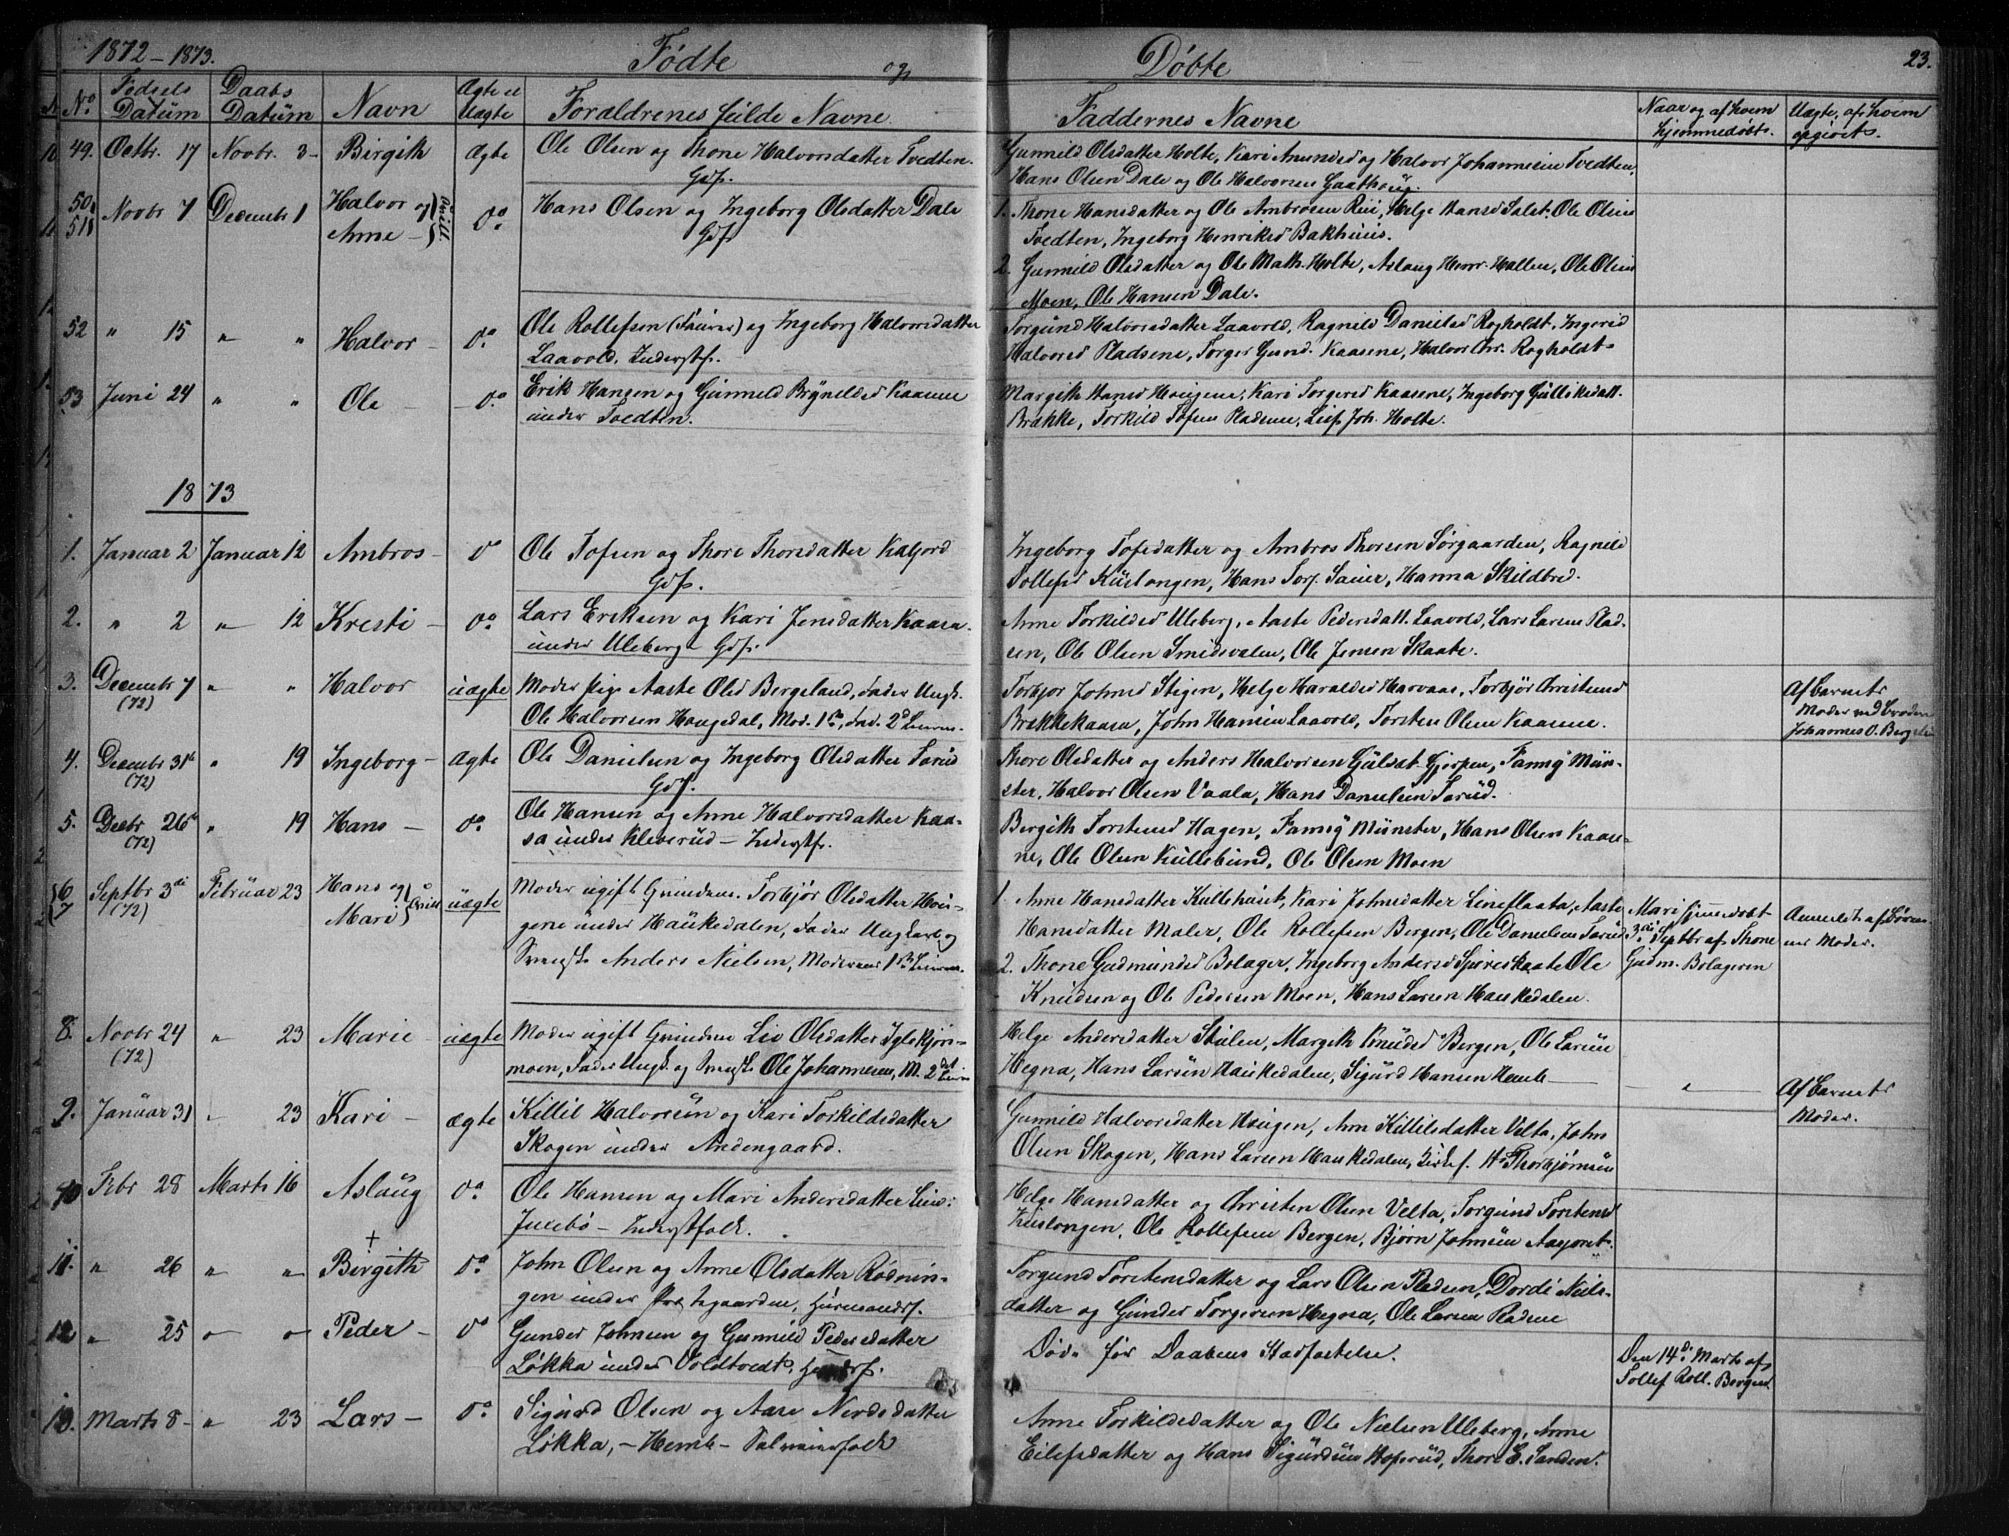 1872 – 1873. Fødte og Døbte 23.
No. Fødsels Datum Daabs Datum Navn Ægte el Uægte Forældrenes fulde Navne Faddernes Navne Naar og af hvem hjemmedøbt. Uægte, af hvem opgivet.
49. Octbr. 17 Novbr. 3 – Birgith Ægte Ole Olsen og Thone Halvorsdatter Tvedten. Gdf.
Gunnild Olsdatter Holte, Kari Amundsd og Halvor Johannesen Tvedten,
Hans Olsen Dale og Ole Halvorsen Gaathoug.
50. 51. Novbr 7 Decembr 1 Halvor og Anne – Tvill. Do. Hans Olsen og Ingeborg Olsdatter Dale Gdf
1. Thone Hansdatter og Ole Ambrosen Rui, Helge Hansd Solat. Ole Olsen
Tvedten, Ingeborg Henriksd Bakhuus.
2. Gunnild Olsdatter og Ole Math. Holte, Aslaug Henr. Hallen, Ole Olsen
Moen, Ole Hansen Dale.
52 " 15 " " Halvor – Do. Ole Rollefsen (Saurer) og Ingeborg Halvorsdatter
Laavold, Inderstf.
Torgund Halvorsdatter Laavold, Ragnild Danielsd Rogholdt, Ingerid
Halvorsd Pladsene, Torger Gund. Kaasene, Halvor Chr. Rogholdt
53 Juni 24 " " Ole – Do. Erik Hansen og Gunnild Brynildsd Kaasene
under Tvedten.
Margith Hansd Hougene, Kari Torgersd Kaasene, Ingeborg Gulliksdatt.
Brække, Torkild Tofsen Pladsene, Leif Joh. Holte.
1873
1. Januar 2 Januar 12 Ambros – Do Ole Tofsen og Thore Thorsdatter Kaljord Gdf.
Ingeborg Tofsdatter og Ambros Thorsen Sørgaarden, Ragnild
Tollefsd Kuslongen, Hans Torf. Sauer, Hanna Skildbred.
2. " 2 " 12 Kresti – Do. Lars Eriksen og Kari Jensdatter Kaasa
under Uleberg Gdf.
Anne Torkildsd Uleberg, Aaste Pedersdatt. Laavold, Lars Larsen Plad-
sen, Ole Olsen Smedsvalen, Ole Jensen Skaate.
3. Decembr 7 (72) " " Halvor uægte Moder Pige Aaste Olsd Bergeland, Fader Ungk.
Ole Halvorsen Haugedal, Mod. 1ste, Fad. 2d Leierm.
Torbjør Johnsd Stigen, Helge Haraldsd Harvaas, Torbjør Christensd
Brækkekaasa, John Hansen Laavold, Torsten Olsen Kaasene.
Af Barnets
Moder ved Broderen
Johannes O. Bergelan
4. Decembr 31te (72) " 19 Ingeborg – Ægte Ole Danielsen og Ingeborg Olsdatter Tarud Gdf.
Thore Olsdatter og Anders Halvorsen Gulset Gjerpen, Fanny Mün-
ster, Halvor Olsen Vaala, Hans Danielsen Tarud.
5. Decbr 26de (72) " 19 Hans – Do. Ole Hansen og Anne Halvorsdatter Kaa-
sa under Kleberud – Inderstf.
Bergith Torstensd Hagen, Fanny Münster, Hans Olsen Kaase-
ne, Ole Olsen Kullebund, Ole Olsen Moen
6 7 Septbr 3die (72) Februar 23 Hans og Mari Tvill. uægte Moder ugift Grundeier. Torbjør Olsdatter Hou-
gene under Haukedalen, Fader Ungkarl og
Svensk Anders Nielsen, Moderens 1ste Leierm.
1. Anne Hansdatter Kullehuset, Kari Johnsdatter Lineflaata, Aaste
Hansdatter Moler, Ole Rollefsen Bergen, Ole Danielsen Tarud
2. Thone Gudmundsd Bolager, Ingeborg Andersd Spireskaate Ole
Knudsen og Ole Pedersen Moen, Hans Larsen Haukedalen.
Mari hjemmedøbt
3die Septbr af Thone
Gudm. Bolageren
Anmeldt af Børne-
nes Moder.
8. Novbr 24 (72) " 23 Marie uægte Moder ugift Liv Olsdatter Iglekjøn-
moen, Fader Ungk. og Svensk Ole Johannesen, M. 2det Leierm
Helge Andersdatter Stulen, Margith Knudsd Bergen, Ole Larsen
Hegna, Hans Larsen Haukedalen, Sigurd Hansen Hemb –
"
Af Barnets
Moder.
9. Januar 31 " 23 Kari – ægte Killil Halvorsen og Kari Torkildsdatter
Skogen under Andengaard.
Gunnild Halvorsdatter Hougen, Ann Killilsdatter Velta, John
Olsen Skogen, Hans Larsen Haukedalen, H. Thorbjørnsen
10 Febr 28 Marts 16 Aslaug Do. Ole Hansen og Mari Andersdatter Lun-
Juvebø – Inderstfolk.
Helge Hansdatter og Christen Olsen Velta, Torgund Torstensd
Kuslongen, Ole Rollefsen Bergen, Bjørn Johnsen
11. " 26 " " + Birgith Do. John Olsen og Anne Olsdatter Rødnin-
gen under Huusmandsf.
Torgund Torstensdatter og Lars Olsen Pladsen, Dordi Niels-
datter og Gunder Torgersen Hegna, Ole Larsen Pladsene
12 " 25 " " Peder – Do Gunder Johnsen og Gunnild Pedersdatter
Løkka under Voldtvedt,
Døde før Daabens Stadfæstelse.
Den 14de Marts af
Tollef Roll. Bergene
13. Marts 8 – " 23 Lars – Do. Sigurd Olsen og Aase Nerdsdatter
Løkka, – Hemb –
Anne Torkildsdatter og Ole Nielsen Uleberg, Anne
Eilefsdatter og Hans Sigurdsen Hoperud, Thor E. Sanden.